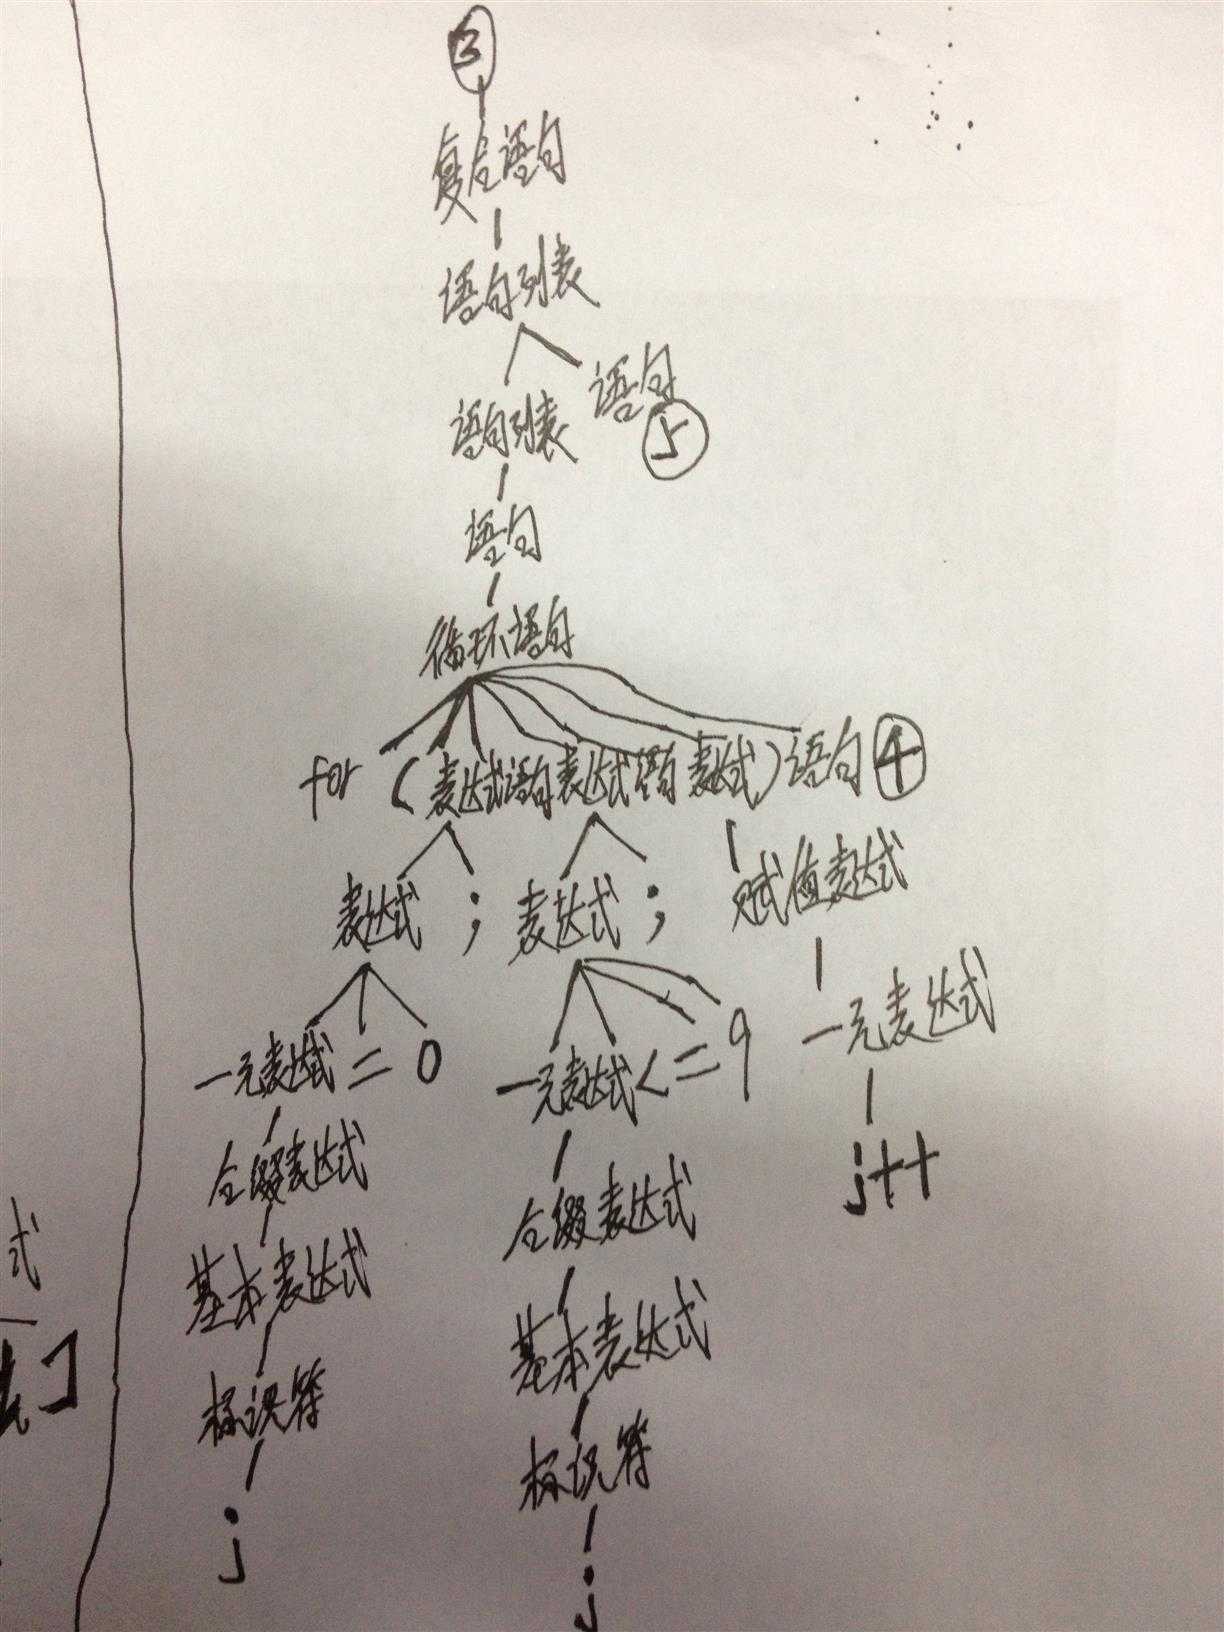 3
复合语句
语句列表
语句列表 语句
5
语句
循环语句
for (表达式语句 表达式语句 表达式) 语句 4
表达式 ; 表达式 ; 赋值表达式
一元表达式 = 0 一元表达式 < = 9 一元表达式
后缀表达式 后缀表达式 j++
基本表达式 基本表达式
标识符 标识符
j j
式
]